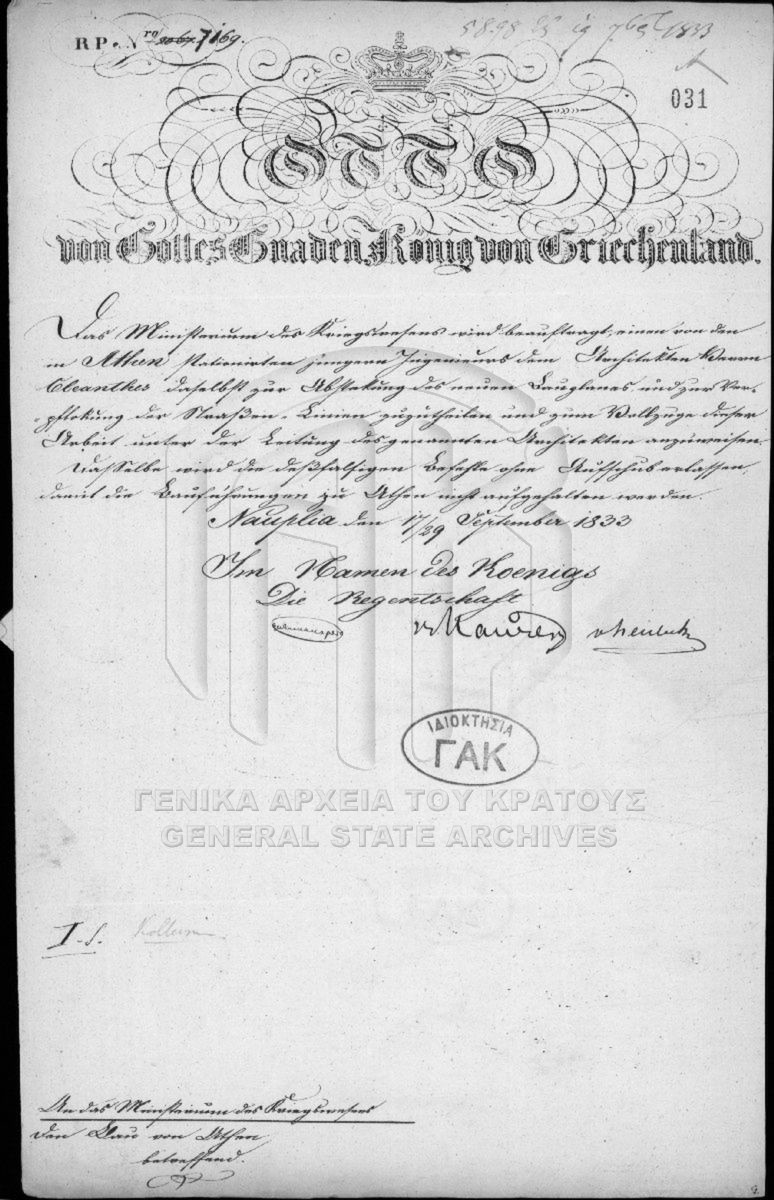 R P. Nro 7169.
5898 19 7br 1833
031
OTTO
von Gottes Gnaden, König von Griechenland.
Das Ministerium des Kriegswesens wird beauftragt, einen von den
in Athen stationirten jüngern Ingenieurs dem Architekten Herrn
Cleanthes daselbst zur Absteckung des neuen Bauplanes, und zur Ver-
pflokung der Straßen-Linien zuzutheilen und zum Vollzuge dieser
Arbeit unter der Leitung des genannten Architekten anzuweisen.
Dasselbe wird die deßfalsigen Befehle ohne Aufschub erlassen,
damit die Bauführungen zu Athen nicht aufgehalten werden.
Nauplia den 17/29 September 1833
Im Namen des Koenigs
Die Regentschaft
v Maurer v Heideck
ΙΔΙΟΚΤΗΣΙΑ
ΓΑΚ
ΓΕΝΙΚΑ ΑΡΧΕΙΑ ΤΟΥ ΚΡΑΤΟΥΣ
GENERAL STATE ARCHIVES
I.
An das Ministerium des Kriegswesens
den Bau von Athen
betreffend.